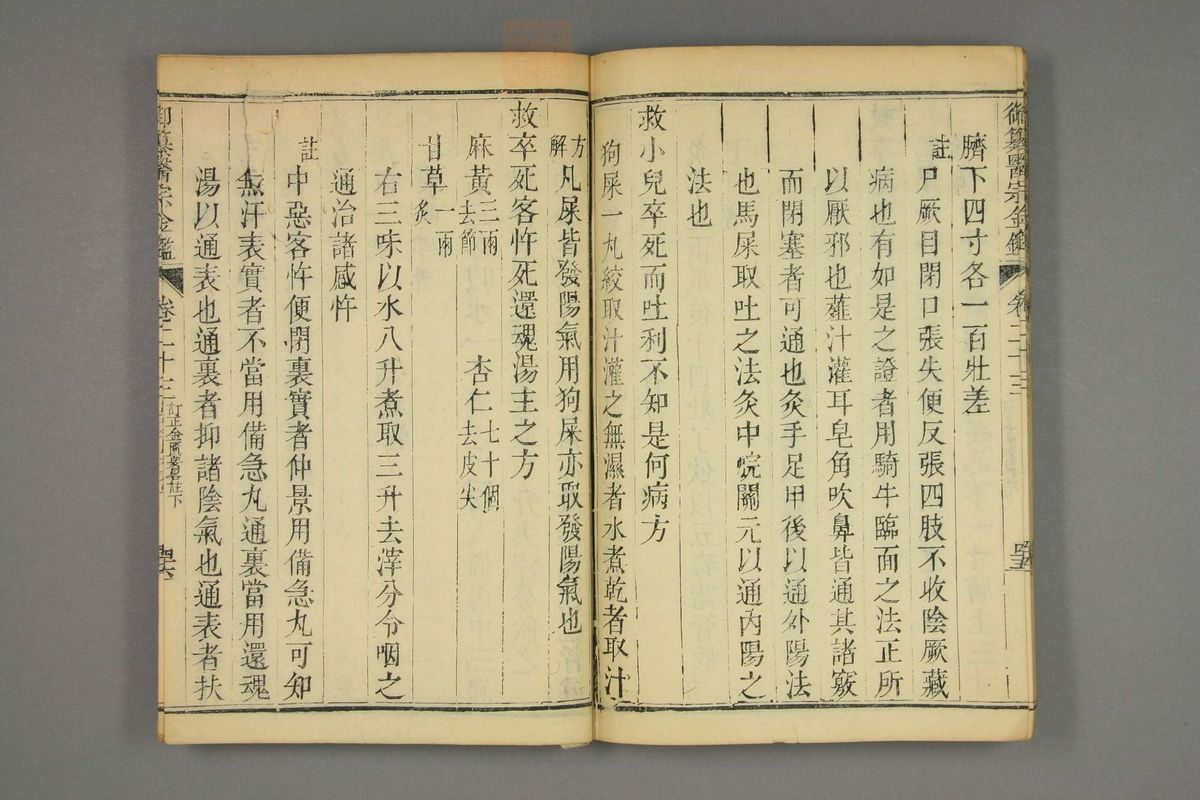 御纂醫宗金鑑 卷二十三 四十五
臍下四寸各一百壯差
註 尸厥目閉口張失便反張四肢不收陰厥藏
病也有如是之證者用騎牛臨面之法正所
以厭邪也薤汁灌耳皂角吹鼻皆通其諸竅
而閉塞者可通也灸手足甲後以通外陽法
也馬屎取吐之法灸中脘關元以通內陽之
法也
救小兒卒死而吐利不知是何病方
狗屎一丸絞取汁灌之無濕者水煮乾者取汁
方解 凡屎皆發陽氣用狗屎亦取發陽氣也
救卒死客忤死還魂湯主之方
麻黃三兩去節 杏仁七十個去皮尖
甘草一兩炙
右三味以水八升煮取三升去滓分令咽之
通治諸感忤
註 中惡客忤便閉裏實者仲景用備急丸可知
無汗表實者不當用備急丸通裏當用還魂
湯以通表也通裏者抑諸陰氣也通表者扶
御纂醫宗金鑑 卷二十三 訂正金匱要畧註下 四十六